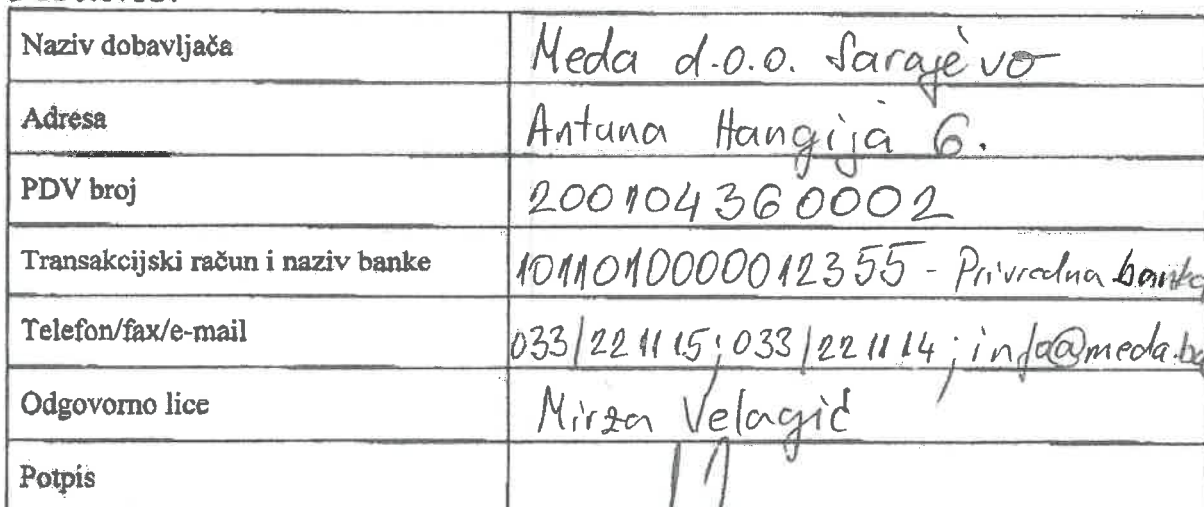 Naziv dobavljača Meda d.o.o. Sarajevo
Adresa Antuna Hangija 6.
PDV broj 200104360002
Transakcijski račun i naziv banke 1011010000012355 - Privredna banka
Telefon/fax/e-mail 033/221115; 033/221114; info@meda.ba
Odgovorno lice Mirza Velagić
Potpis